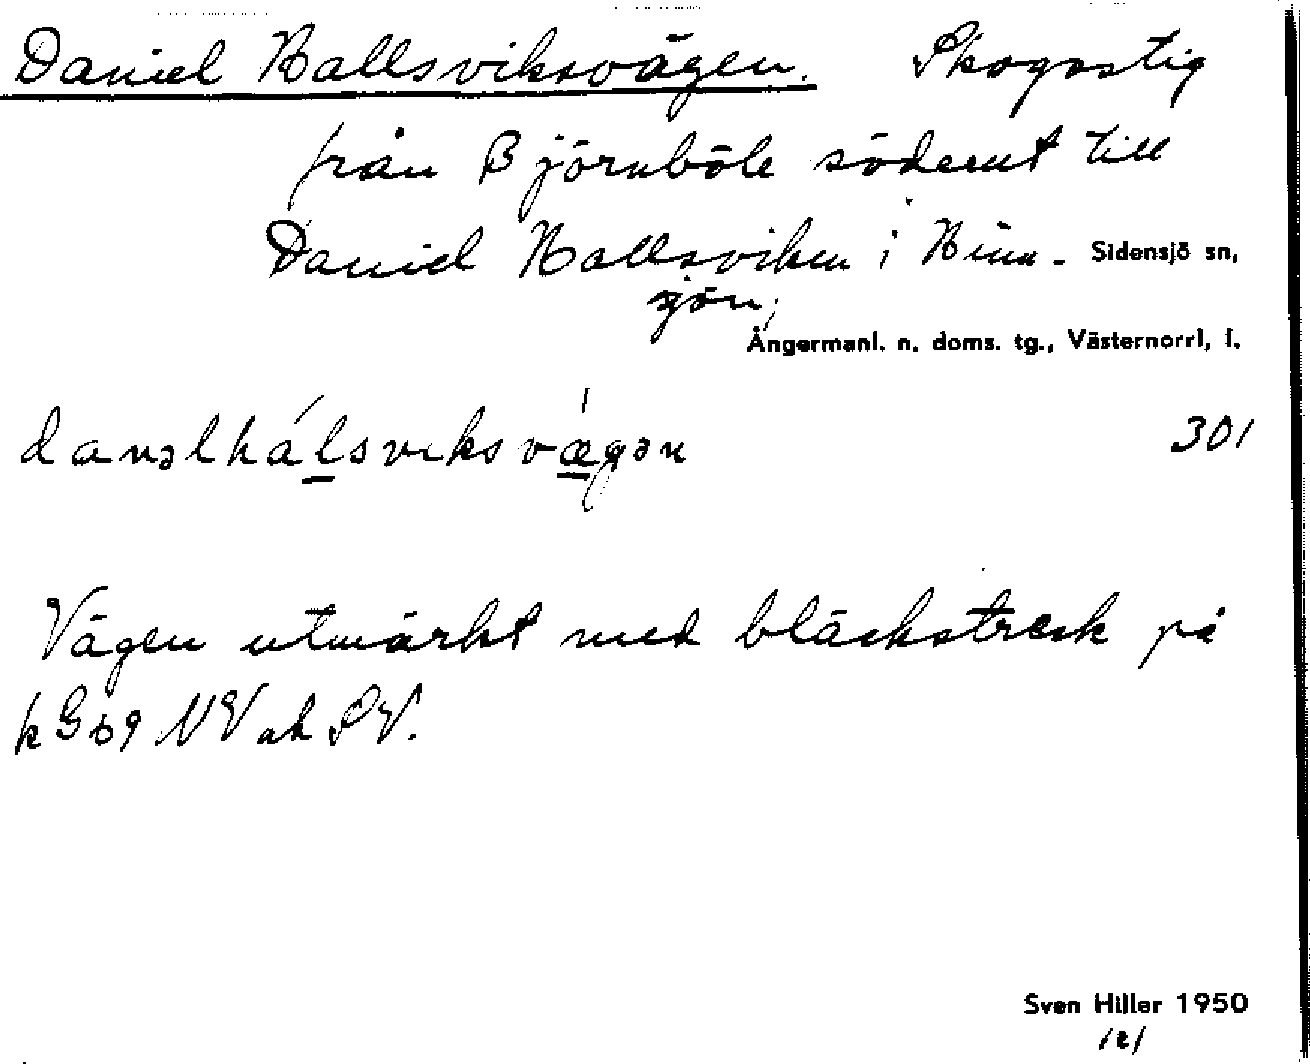 Daniel Hallsviksvägen. Skogsstig
från Björnböle söderut till
Daniel Hallsviken i Hinn-
sjön; Sidensjö sn,
Ångermanl. n. doms. tg., Västernorrl. l.
danəlhálsviksvǽgən 301
Vägen utmärkt med bläckstreck på
k G69 NV ah SV.
Sven Hiller 1950
/2/